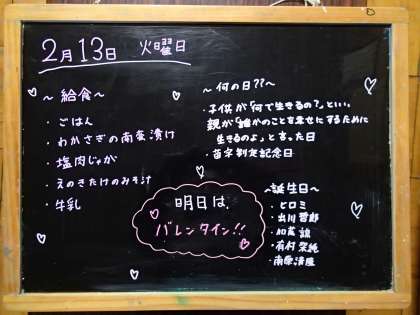 2月13日 火曜日
～ 給食～
・ごはん
・わかさぎの南蛮漬け
・塩肉じゃが
・えのきたけのみそ汁
・牛乳
～ 何の日??～
・子供が「何で生きるの?」といい
親が「誰かのことを幸せにするために
生きるのよ」と言った日
・苗字制定記念日
明日は、
バレンタイン!!
～誕生日～
・ヒロミ
・出川哲郎
・加藤諒
・有村架純
・南原清隆